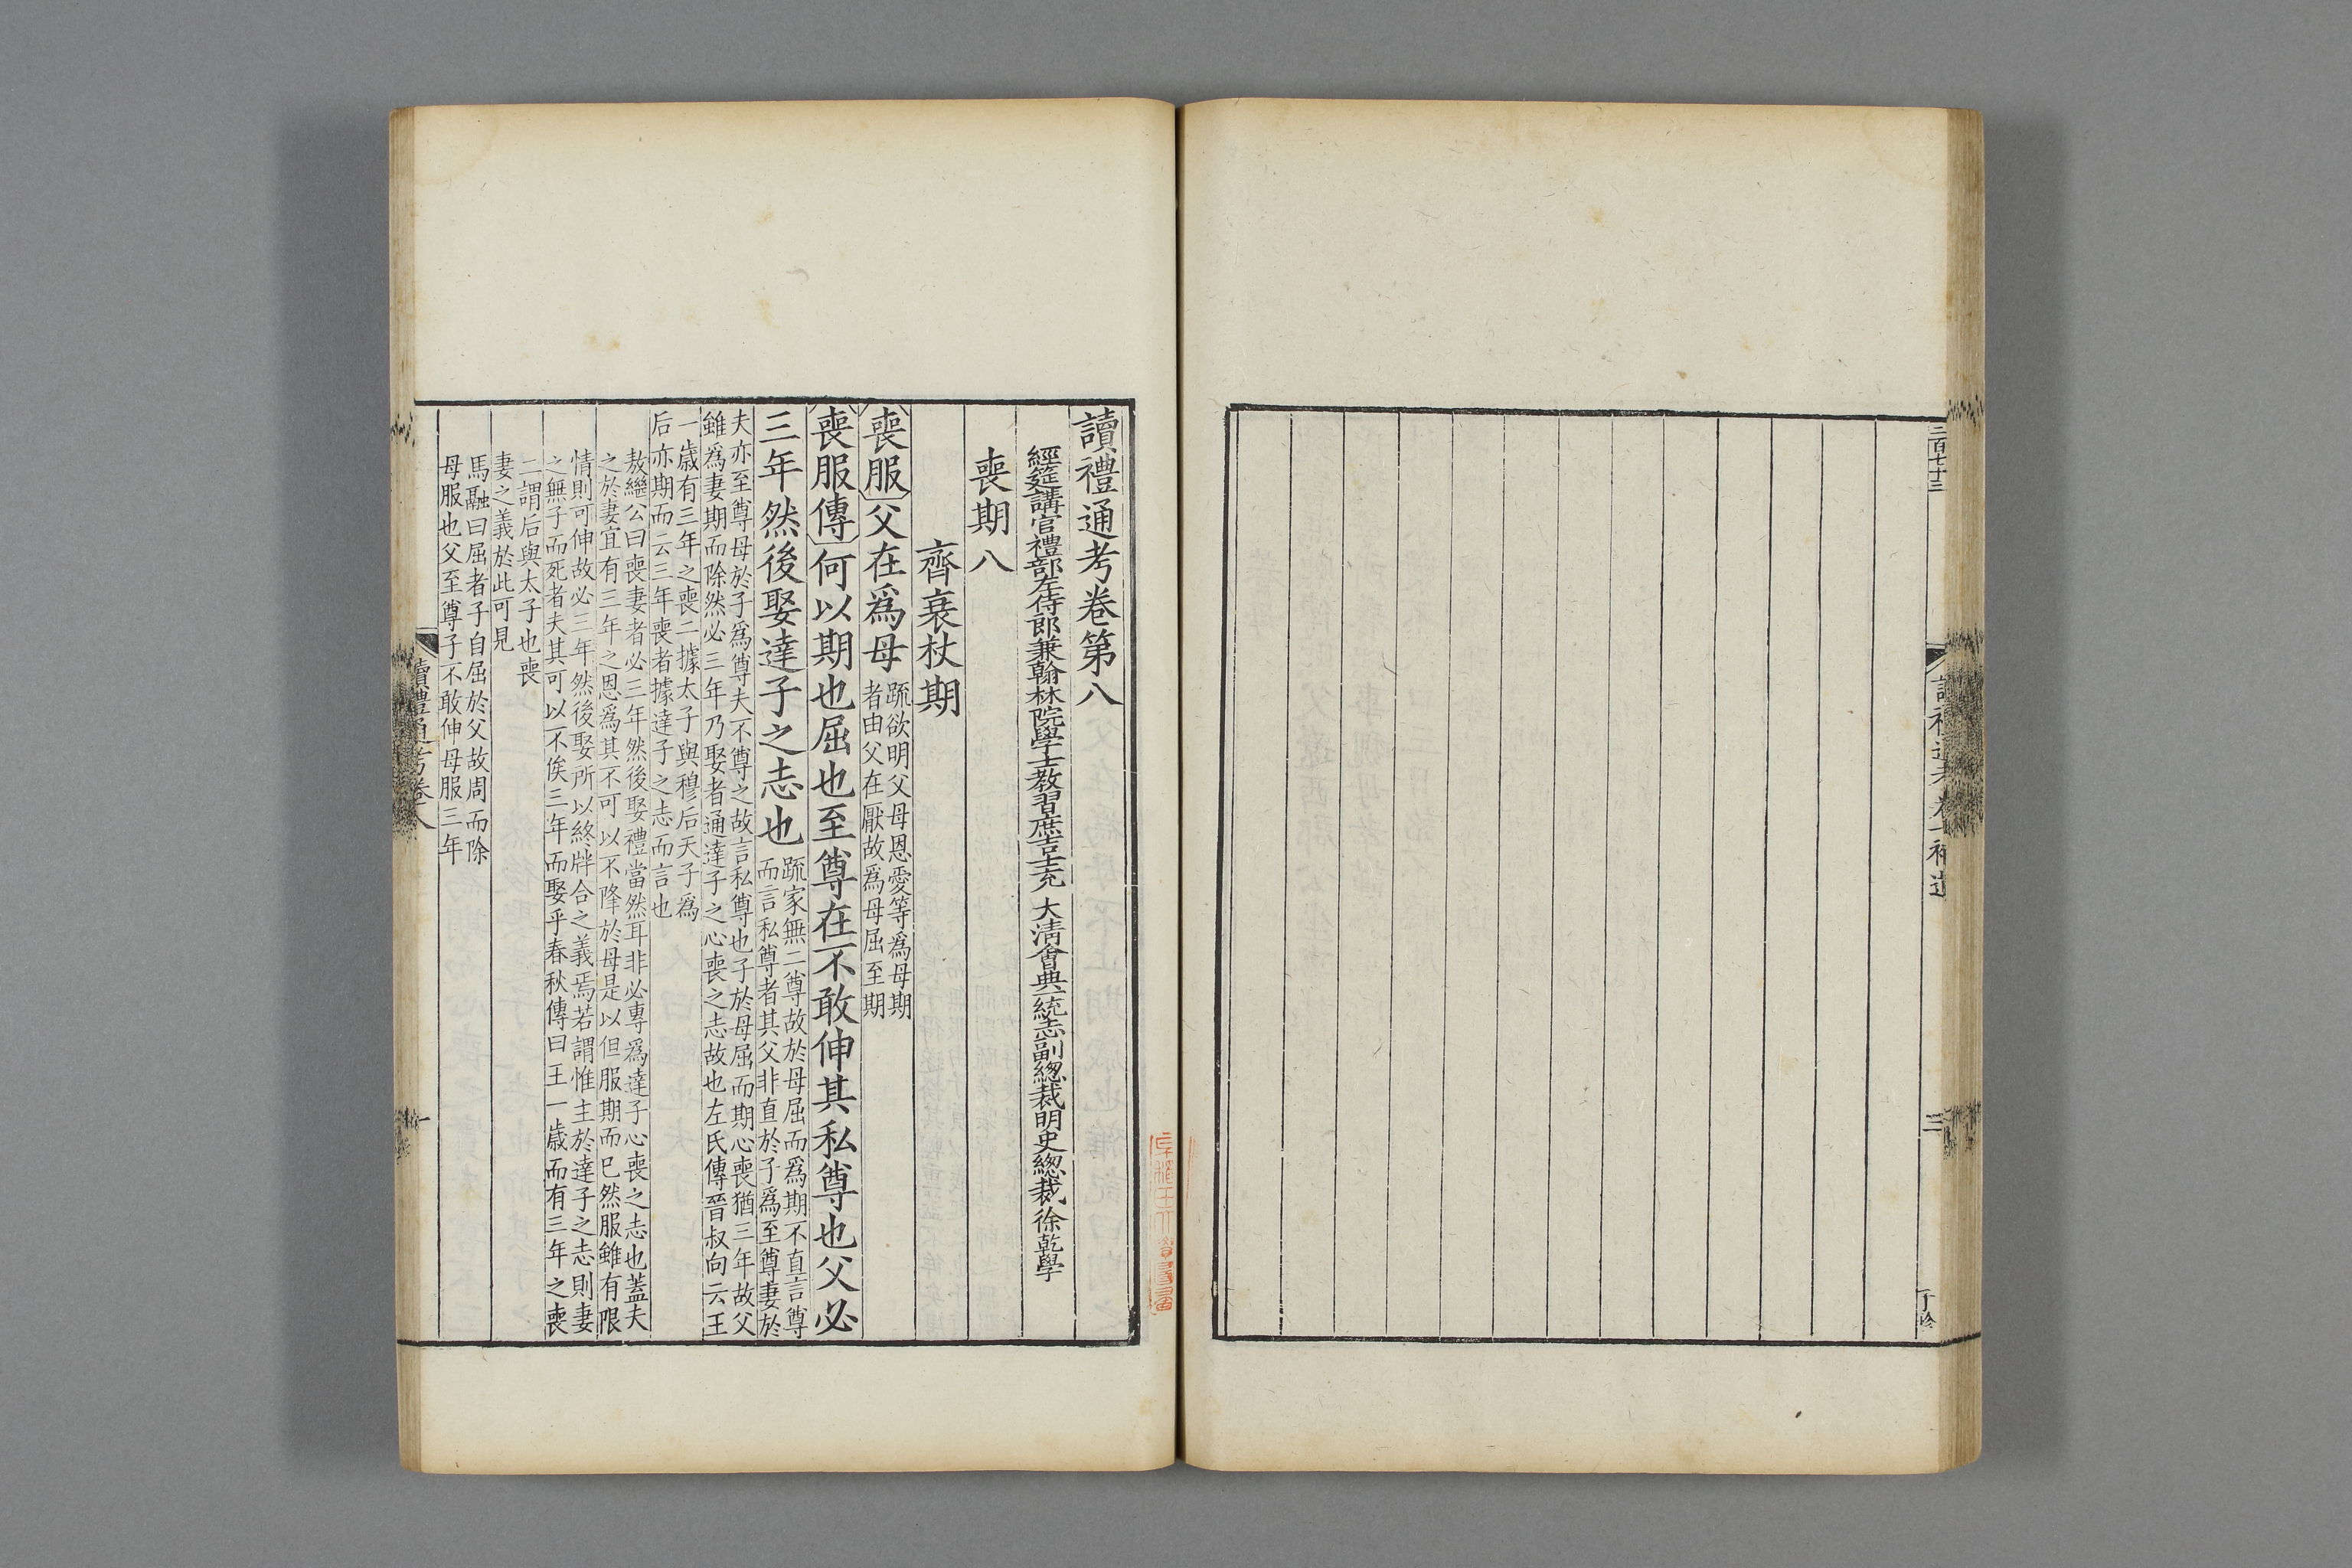 二百七十三
三
讀禮通考卷第八
經筵講官禮部左侍郎兼翰林院學士教習庶吉士充 大清會典一統志副總裁明史總裁徐乾學
喪期八
齊衰杖期
喪服父在爲母疏欲明父母恩愛等爲母期
者由父在厭故爲母屈至期
喪服傳何以期也屈也至尊在不敢伸其私尊也父必
三年然後娶達子之志也疏家無二尊故於母屈而爲期不直言尊
而言私尊者其父非直於子爲至尊妻於
夫亦至尊母於子爲尊夫不尊之故言私尊也子於母屈而期心喪猶三年故父
雖爲妻期而除然必三年乃娶者通達子之心喪之志故也左氏傳晉叔向云王
一歲有三年之喪二據太子與穆后天子爲
后亦期而云三年喪者據達子之志而言也
敖繼公曰喪妻者必三年然後娶禮當然耳非必專爲達子心喪之志也蓋夫
之於妻宜有三年之恩爲其不可以不降於母是以但服期而已然服雖有限
情則可伸故必三年然後娶所以終牉合之義焉若謂惟主於達子之志則妻
之無子而死者夫其可以不俟三年而娶乎春秋傳曰王一歲而有三年之喪
二謂后與太子也喪
妻之義於此可見
馬融曰屈者子自屈於父故周而除
母服也父至尊子不敢伸母服三年
讀禮通考卷八
一